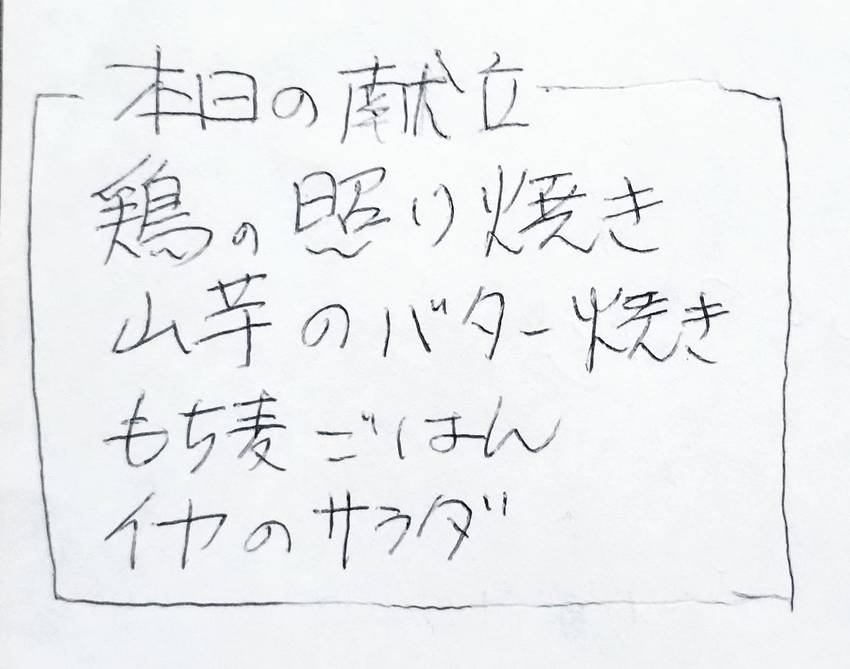 本日の献立
鶏の照り焼き
山芋のバター焼き
もち麦ごはん
イヤのサラダ